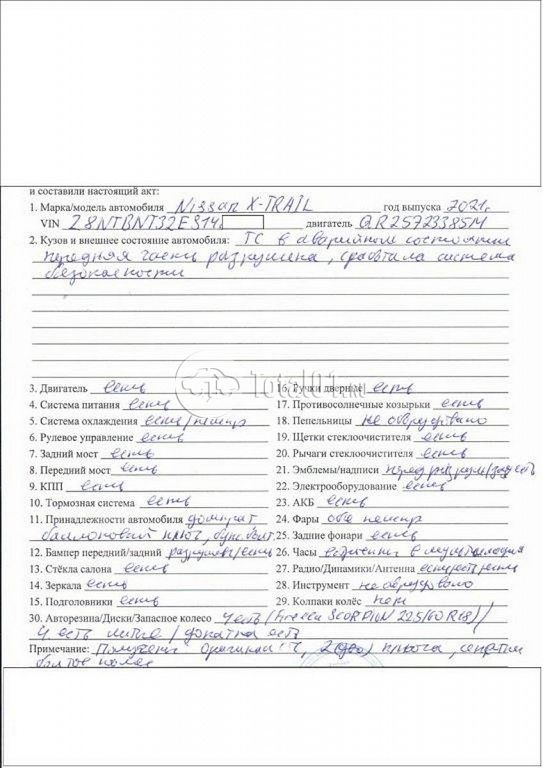 и составили настоящий акт:
1. Марка/модель автомобиля Nissan X-TRAIL год выпуска 2021г
VIN Z8NTBNT32ES14 двигатель QR2572338514
2. Кузов и внешнее состояние автомобиля: ТС в аварийном состоянии
передняя часть разрушена, сработала система
безопасности
Total01.ru
3. Двигатель есть 16. Ручки дверные есть
4. Система питания есть 17. Противосолнечные козырьки есть
5. Система охлаждения есть/неиспр 18. Пепельницы не оборудовано
6. Рулевое управление есть 19. Щетки стеклоочистителя есть
7. Задний мост есть 20. Рычаги стеклоочистителя есть
8. Передний мост есть 21. Эмблемы/надписи перед разруш/зад есть
9. КПП есть 22. Электрооборудование есть
10. Тормозная система есть 23. АКБ есть
11. Принадлежности автомобиля домкрат 24. Фары обе неиспр
баллонный ключ, букс. болт 25. Задние фонари есть
12. Бампер передний/задний разрушен/есть 26. Часы в мультимедия
13. Стёкла салона есть 27. Радио/Динамики/Антенна есть/есть/есть
14. Зеркала есть 28. Инструмент не оборудовано
15. Подголовники есть 29. Колпаки колёс нет
30. Авторезина/Диски/Запасное колесо 4 есть (SCORPION 225/60 R18)/
4 есть литые / докатка есть
Примечание: Получены оригинал 2 (два) ключа, секретки
болтов колес